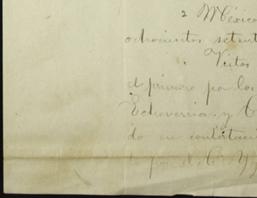 2 México
ochocientos setent
Vistos
el primero por los
Echeverria y C
do en contestaci